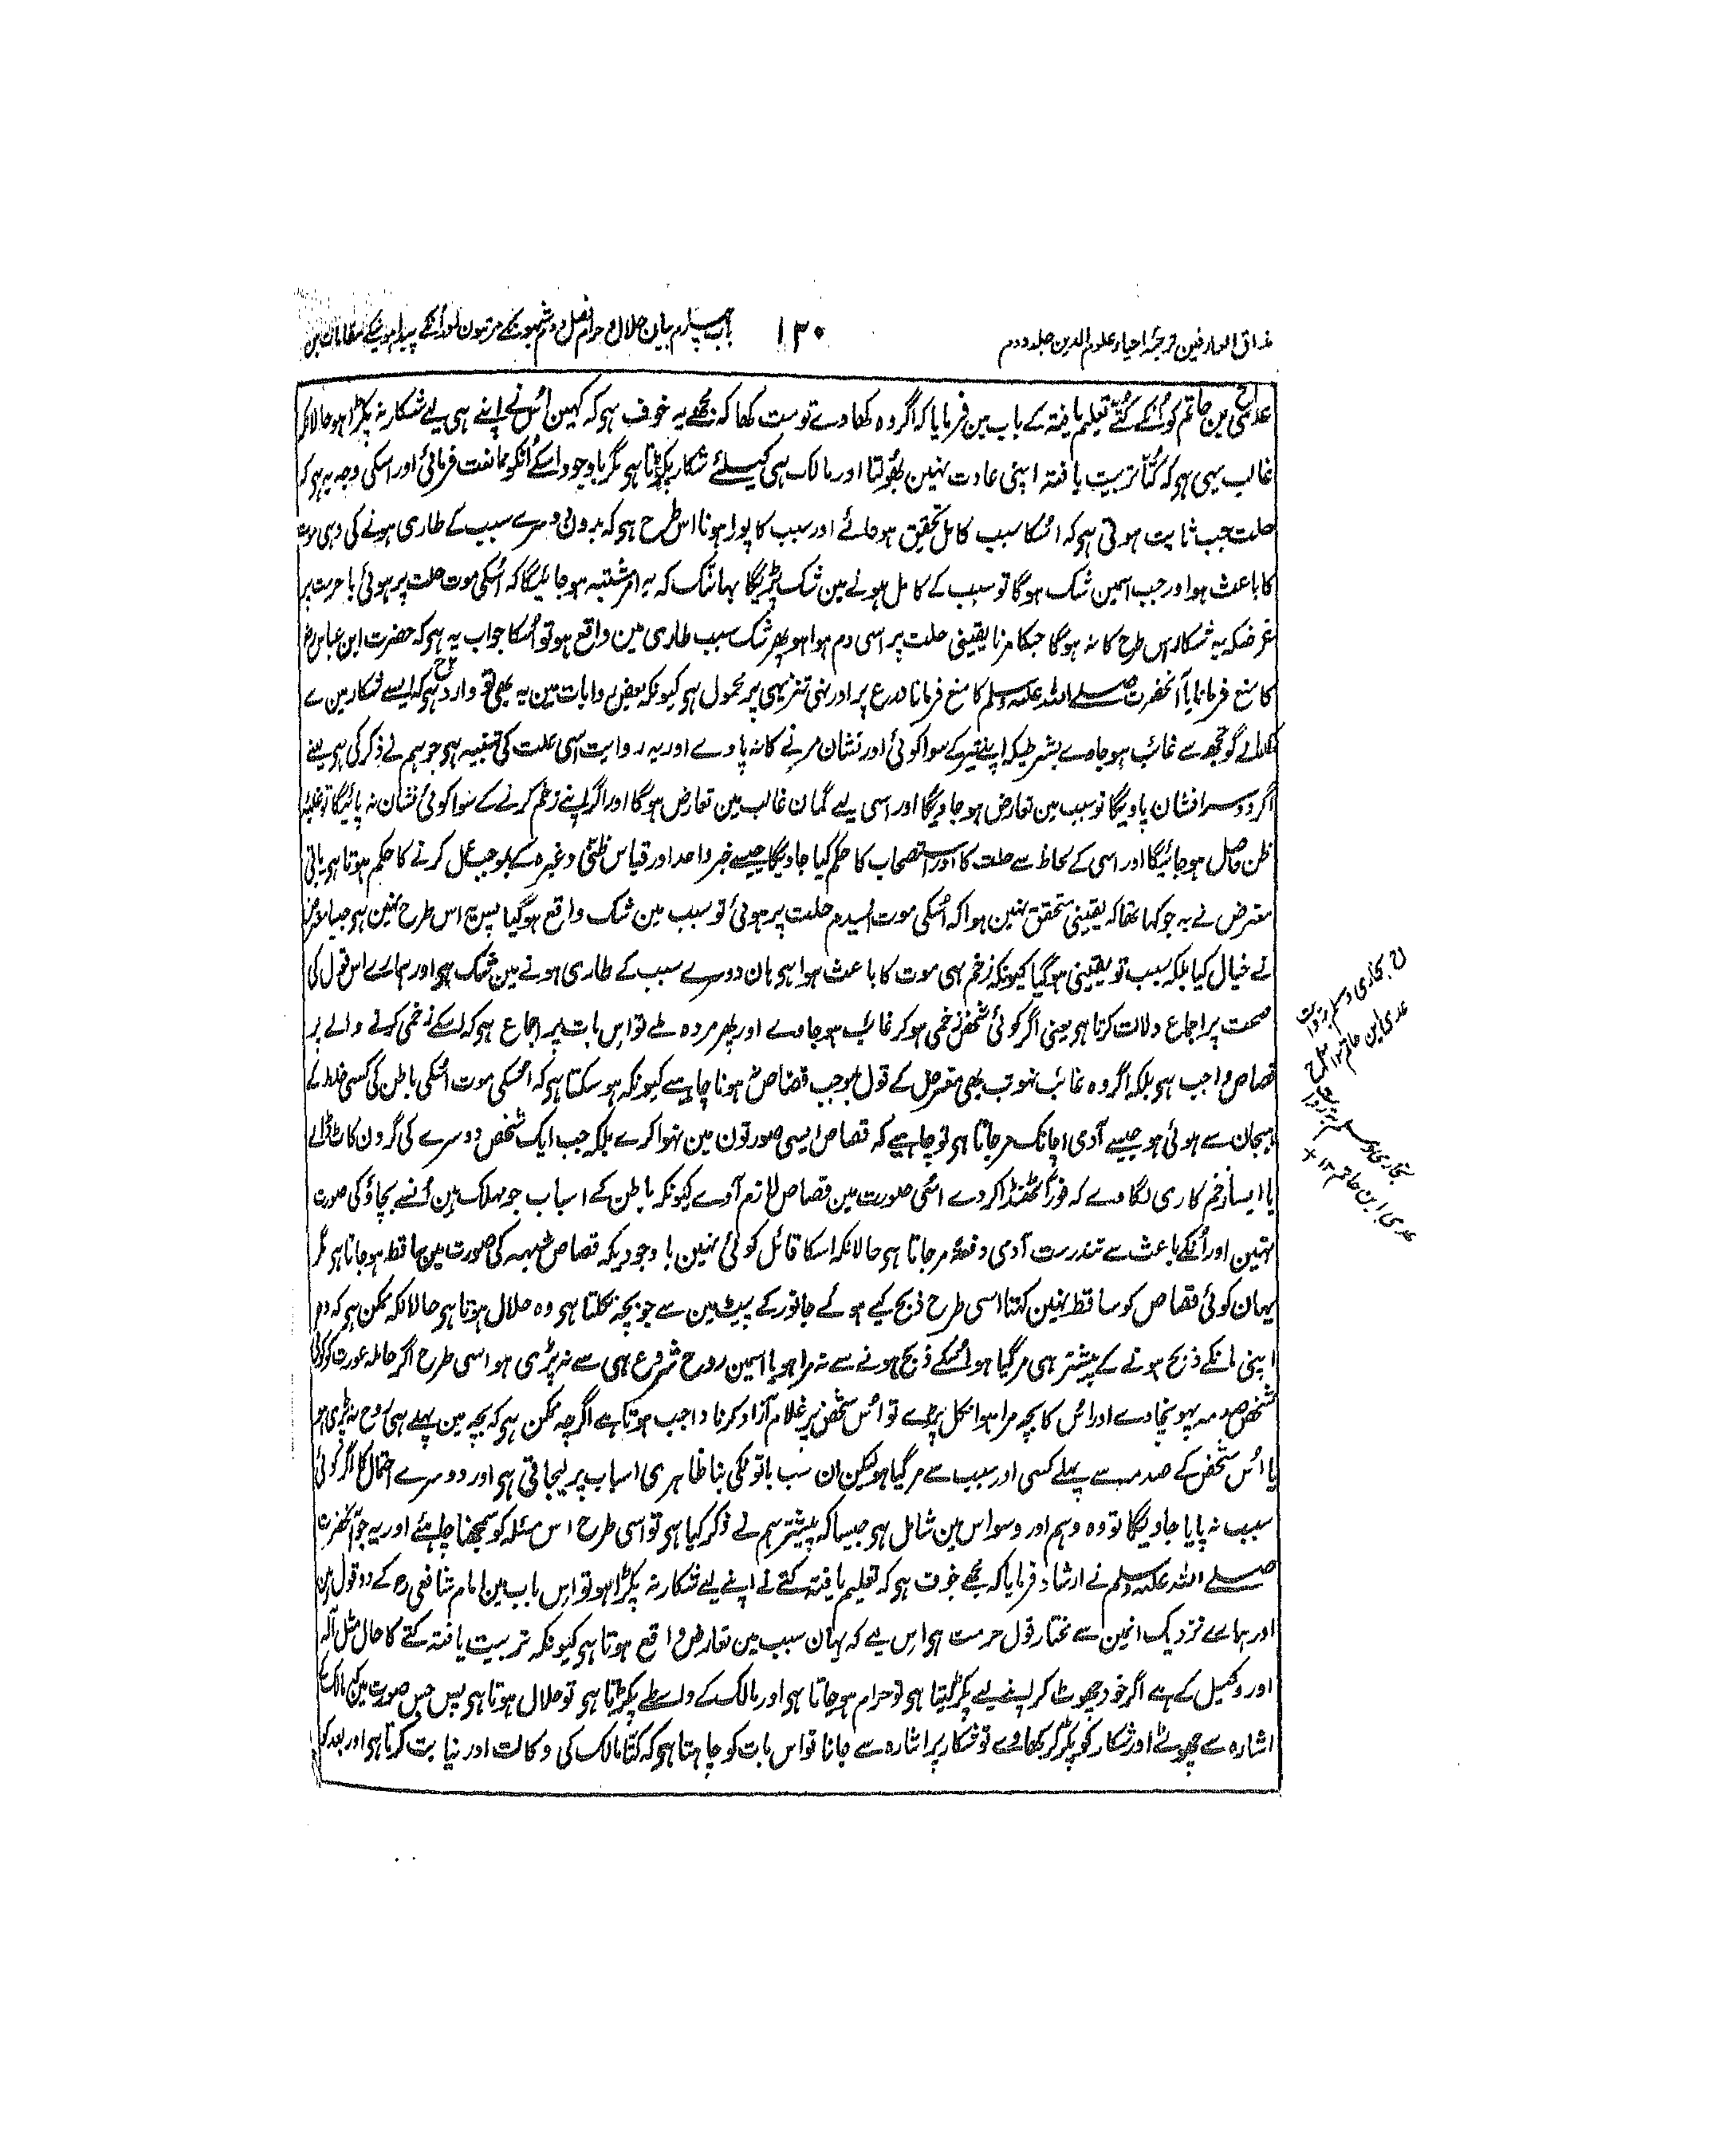 مذاق العارفین ترجمۂ احیاء علوم الدین جلد دوم
۱۳۰
باب چہارم بیان حلال و حرام فصل دوم شبہونکے مرتبون اور انکے پیدا ہونیکے مقامات مین
عدی بن حاتم کو اُنکے کتے تعلیم یافتہ کے باب مین فرمایا کہ اگر وہ کھاوے تو مت کھا کہ مجھے یہ خوف ہی کہ کہین اُس نے اپنے ہی لیے شکار نہ پکڑا ہو حالانکہ
غالب یہی ہو کہ کُتّا تربیت یافتہ اپنی عادت نہین بھولتا اور مالک ہی کیلئے شکار پکڑتا ہی مگر باوجود اسکے اُنکو ممانعت فرمائی اور اسکی وجہ یہ ہو کہ
حلت جب ثابت ہوتی ہی کہ اُسکا سبب کامل تحقیق ہو جائے اور سبب کا پورا ہونا اس طرح ہی کہ بدون دوسرے سبب کے طاری ہونے کی وہی موت
کا باعث ہو اور جب اسمین شک ہو گا تو سبب کے کامل ہونے مین شک پڑیگا یہانتک کہ یہ امر مشتبہ ہو جائیگا کہ اُسکی موت حلت پر ہوئی یا حرمت پر
غرضکہ یہ شکار اس طرح کا نہ ہو گا جسکا مرنا یقینی حلت پر اسی دم ہوا ہو پھر شک سبب طاری مین واقع ہو تو اُسکا جواب یہ ہی کہ حضرت ابن عباس رض
کا منع فرمانا یا آنحضرت صلے اللہ علیہ وسلم کا منع فرمانا ورع پر اور نہی تنزیہی پر محمول ہی کیونکہ بعض روایات مین یہ بھی تو وارد ہی کہ ایسے شکار مین سے
کھالے گو تجھ سے غائب ہو جاوے بشرطیکہ اپنے تیر کے سوا کوئی اور نشان مرنے کا نہ پاوے اور یہ روایت اسی علت کی تنبیہ ہی جو ہم نے ذکر کی ہی یعنے
اگر دوسرا نشان پاویگا تو سبب مین تعارض ہو جاویگا اور اسی لیے گمان غالب مین تعارض ہو گا اور اگر اپنے زخم کرنے کے سوا کوئی نشان نہ پائیگا تو غلبۂ
ظن حاصل ہو جائیگا اور اسی کے لحاظ سے حلت کا اور استصحاب کا حکم کیا جاویگا جیسے خبر واحد اور قیاس ظنّی وغیرہ کے بموجب عمل کرنے کا حکم ہوتا ہی باقی
معترض نے یہ جو کہا تھا کہ یقینی متحقق نہین ہوا کہ اُسکی موت اُسیدم حلت پر ہوئی تو سبب مین شک واقع ہو گیا پس یہ اس طرح نہین ہی جیسا معترض
نے خیال کیا بلکہ سبب تو یقینی ہو گیا کیونکہ زخم ہی موت کا باعث ہوا ہی ہان دوسرے سبب کے طاری ہونے مین شک ہی اور ہمارے اس قول کی
صحت پر اجماع دلالت کرتا ہی یعنی اگر کوئی شخص زخمی ہو کر غائب ہو جاوے اور پھر مردہ ملے تو اس بات پر اجماع ہی کہ اسکے زخمی کرنے والے پر
قصاص واجب ہی بلکہ اگر وہ غائب نہو تب بھی معترض کے قول بموجب قصاص نہونا چاہیے کیونکہ ہو سکتا ہی کہ اُسکی موت اُسکی باطن کی کسی خلط کے
ہیجان سے ہوئی ہو جیسے آدمی اچانک مر جاتا ہی تو چاہیے کہ قصاص ایسی صورتون مین نہوا کرے بلکہ جب ایک شخص دوسرے کی گردن کاٹ ڈالے
یا ایسا زخم کاری لگاوے کہ فوراً ٹھنڈا کر دے اسی صورت مین قصاص لازم آوے کیونکہ باطن کے اسباب جو مہلک ہین اُنسے بچاؤ کی صورت
نہین اور اُنکے باعث سے تندرست آدمی دفعۃً مر جاتا ہی حالانکہ اسکا قائل کوئی نہین باوجودیکہ قصاص شبہہ کی صورت مین ساقط ہو جاتا ہی مگر
یہان کوئی قصاص کو ساقط نہین کہتا اسی طرح ذبح کیے ہوئے جانور کے پیٹ مین سے جو بچہ نکلتا ہی وہ حلال ہوتا ہی حالانکہ ممکن ہی کہ وہ
اپنی مانکے ذبح ہونے کے پیشتر ہی مر گیا ہو اُسکے ذبح ہونے سے نہ مرا ہو یا اسمین روح شروع ہی سے نہ پڑی ہو اسی طرح اگر حاملہ عورت کو کوئی
شخص صدمہ پہونچاوے اور اس کا بچہ مرا ہوا نکل پڑے تو اُس شخص پر غلام آزاد کرنا واجب ہوتا ہے اگرچہ ممکن ہی کہ بچہ مین پہلے ہی روح نہ پڑی ہو
یا اُس شخص کے صدمہ سے پہلے کسی اور سبب سے مر گیا ہو لیکن ان سب باتونکی بنا ظاہری اسباب پر لیجاتی ہی اور دوسرے احتمال کا اگر کوئی
سبب نہ پایا جاویگا تو وہ وہم اور وسواس مین شامل ہی جیسا کہ پیشتر ہم نے ذکر کیا ہی تو اسی طرح اس مسئلہ کو سمجھنا چاہئے اور یہ جو آنحضرت
صلے اللہ علیہ وسلم نے ارشاد فرمایا کہ مجھے خوف ہی کہ تعلیم یافتہ کتے نے اپنے لیے شکار نہ پکڑا ہو تو اس باب مین امام شافعی رح کے دو قول ہین
اور ہمارے نزدیک انمین سے مختار قول حرمت ہی اس لیے کہ یہان سبب مین تعارض واقع ہوتا ہی کیونکہ تربیت یافتہ کتے کا حال مثل آلہ
اور وکیل کے ہے اگر خود چھوٹ کر اپنے لیے پکڑ لیتا ہی تو حرام ہو جاتا ہی اور مالک کے واسطے پکڑتا ہی تو حلال ہوتا ہی پس جس صورت مین کہ مالک کے
اشارہ سے چھوٹے اور شکار کو پکڑ کر کھاوے تو شکار پر اشارہ سے جانا تو اس بات کو چاہتا ہی کہ کتا مالک کی وکالت اور نیابت کرتا ہی اور بعد کو
ح بخاری و مسلم بروایت
عدی ابن حاتم ۱۲
بخاری و مسلم بروایت
عدی ابن حاتم ۱۲